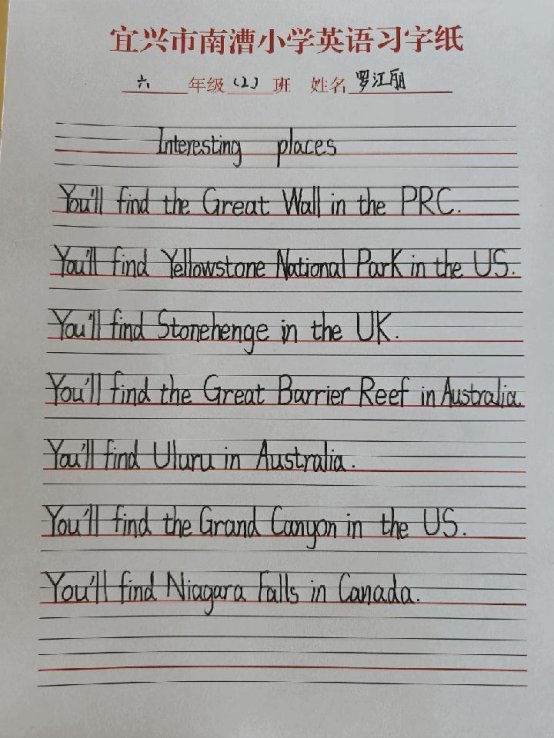 宜兴市南漕小学英语习字纸
六 年级 (2) 班 姓名 罗江丽
Interesting places
You'll find the Great Wall in the PRC.
You'll find Yellowstone National Park in the US.
You'll find Stonehenge in the UK.
You'll find the Great Barrier Reef in Australia.
You'll find Uluru in Australia.
You'll find the Grand Canyon in the US.
You'll find Niagara Falls in Canada.